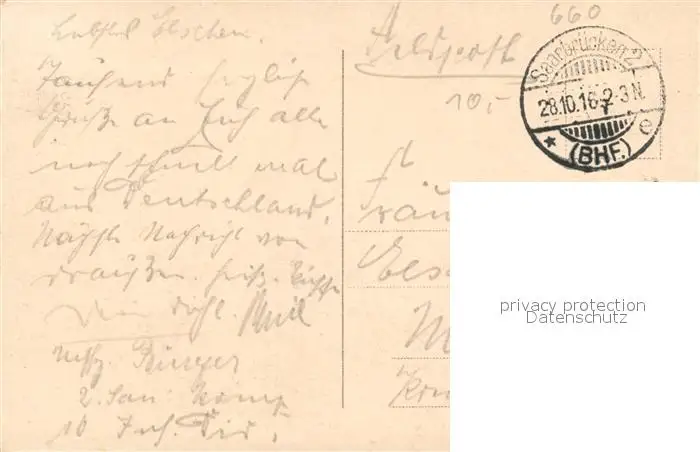 Liebstes Elschen.
Tausend herzliche
Grüße an Euch alle
noch schnell mal
aus Deutschland.
Nächste Nachricht von
draußen. Herz. Küsse
Dein
2. San. Komp
16 Inf. Div.
660
Feldpost
10,-
Saarbrücken 2
28.10.16. 2-3 N.
* (BHF.) e
Fräu
Els
M
privacy protection
Datenschutz